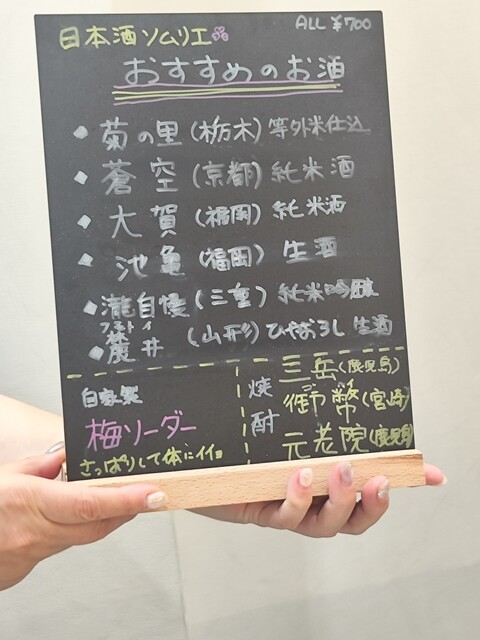 日本酒ソムリエ
ALL ¥700
おすすめのお酒
菊の里 (栃木) 等外米仕込
蒼空 (京都) 純米酒
大賀 (福岡) 純米酒
池亀 (福岡) 生酒
瀧自慢 (三重) 純米吟醸
フモトイ
麓井 (山形) ひやおろし 生酒
自家製
梅ソーダー
さっぱりして体にイイョ
焼酎
三岳 (鹿児島)
御幣 (宮崎)
元老院 (鹿児島)